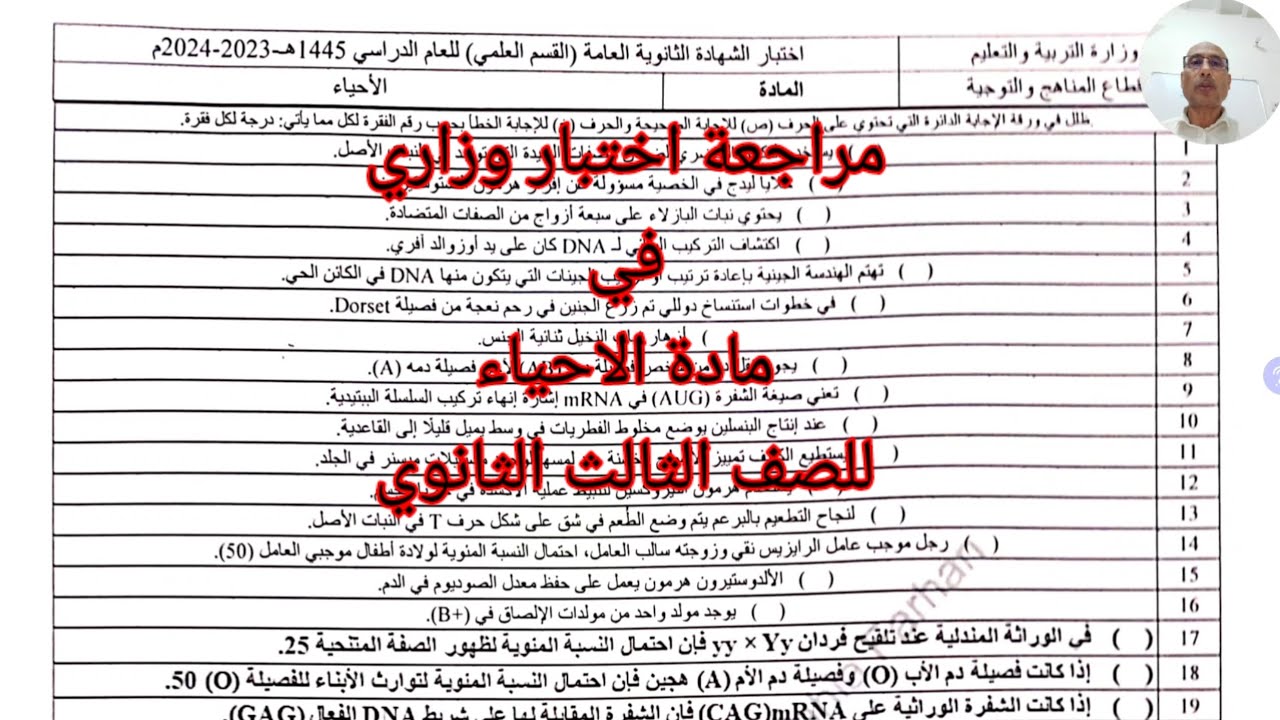 وزارة التربية والتعليم
اختبار الشهادة الثانوية العامة (القسم العلمي) للعام الدراسي 1445هـ-2023-2024م
قطاع المناهج والتوجية
المادة
الأحياء
ظلل في ورقة الإجابة الدائرة التي تحتوي على الحرف (ص) للإجابة الصحيحة والحرف (خ) للإجابة الخطأ بحسب رقم الفقرة لكل مما يأتي: درجة لكل فقرة.
مراجعة اختبار وزاري
في
مادة الاحياء
للصف الثالث الثانوي
1 النبات الأصل.
2 ( ) خلايا ليدج في الخصية مسؤولة عن إفراز هرمون
3 ( ) يحتوي نبات البازلاء على سبعة أزواج من الصفات المتضادة.
4 ( ) اكتشاف التركيب لـ DNA كان على يد أوزوالد آفري.
5 ( ) تهتم الهندسة الجينية بإعادة ترتيب الجينات التي يتكون منها DNA في الكائن الحي.
6 ( ) في خطوات استنساخ دوللي تم زرع الجنين في رحم نعجة من فصيلة Dorset.
7 ( ) أزهار نبات النخيل ثنائية الجنس.
8 ( ) يجوز فصيلة دمه (A).
9 ( ) تعني صيغة الشفرة (AUG) في mRNA إشارة إنهاء تركيب السلسلة الببتيدية.
10 ( ) عند إنتاج البنسلين يوضع مخلوط الفطريات في وسط يميل قليلًا إلى القاعدية.
11 ( ) يستطيع الكفيف تمييز مسنر في الجلد.
12 هرمون الثيروكسين لتثبيط عملية الأكسدة في
13 ( ) لنجاح التطعيم بالبرعم يتم وضع الطُعم في شق على شكل حرف T في النبات الأصل.
14 ( ) رجل موجب عامل الرايزيس نقي وزوجته سالب العامل، احتمال النسبة المئوية لولادة أطفال موجبي العامل (50).
15 ( ) الألدوستيرون هرمون يعمل على حفظ معدل الصوديوم في الدم.
16 ( ) يوجد مولد واحد من مولدات الإلصاق في (B+).
17 ( ) في الوراثة المندلية عند تلقيح فردان yy × Yy فإن احتمال النسبة المئوية لظهور الصفة المتنحية 25.
18 ( ) إذا كانت فصيلة دم الأب (O) وفصيلة دم الأم (A) هجين فإن احتمال النسبة المئوية لتوارث الأبناء للفصيلة (O) 50.
19 ( ) إذا كانت الشفرة الوراثية على mRNA(CAG) فإن الشفرة المقابلة لها على شريط DNA الفعال (GAG).